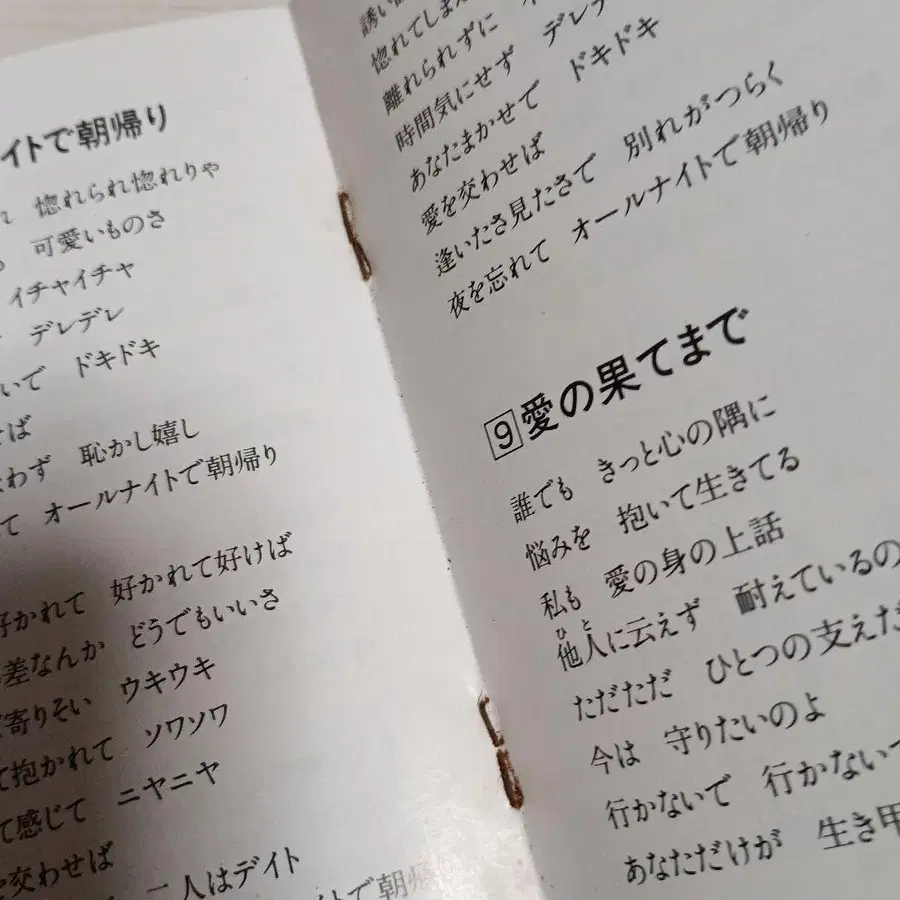 イトで朝帰り
惚れられ惚れりゃ
可愛いものさ
イチャイチャ
デレデレ
いで ドキドキ
せば
わず 恥かし嬉し
て オールナイトで朝帰り
好かれて 好かれて好けば
差なんか どうでもいいさ
寄りそい ウキウキ
て抱かれて ソワソワ
て感じて ニヤニヤ
交わせば
二人はデイト
トで朝帰
誘い
惚れてしまん
離れられずに
時間気にせず デレデ
あなたまかせで ドキドキ
愛を交わせば
逢いたさ見たさで 別れがつらく
夜を忘れて オールナイトで朝帰り
9 愛の果てまで
誰でも きっと心の隅に
悩みを 抱いて生きてる
私も 愛の身の上話
ひと
他人に云えず 耐えているの
ただただ ひとつの支えだ
今は 守りたいのよ
行かないで 行かない
あなただけが 生き甲